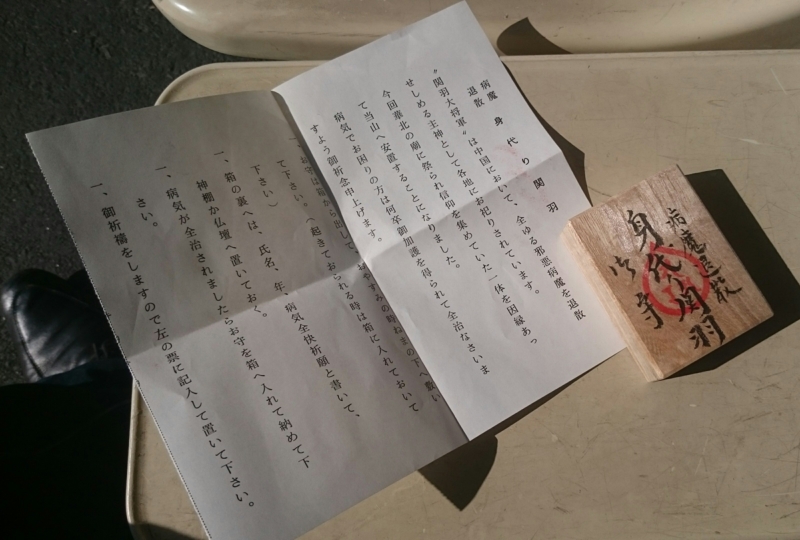 病魔
退散
身代り関羽
“関羽大将軍”は中国において、全ゆる邪悪病魔を退散
せしめる主神として各地にお祀りされています。
今回華北の廟に祭られ信仰を集めていた一体を因縁あっ
て当山へ安置することになりました。
病気でお困りの方は何卒御加護を得られて全治なさいま
すよう御祈念申上げます。
やすみの時ねまの下へ敷い
て下さい。(起きておられる時は箱に入れておいて
下さい)
一、箱の裏へは、氏名、年、病気全快祈願と書いて、
神棚か仏壇へ置いておく。
一、病気が全治されましたらお守を箱へ入れて納めて下
さい。
一、御祈禱をしますので左の票に記入して置いて下さい。
病魔退散
身代り関羽
御守